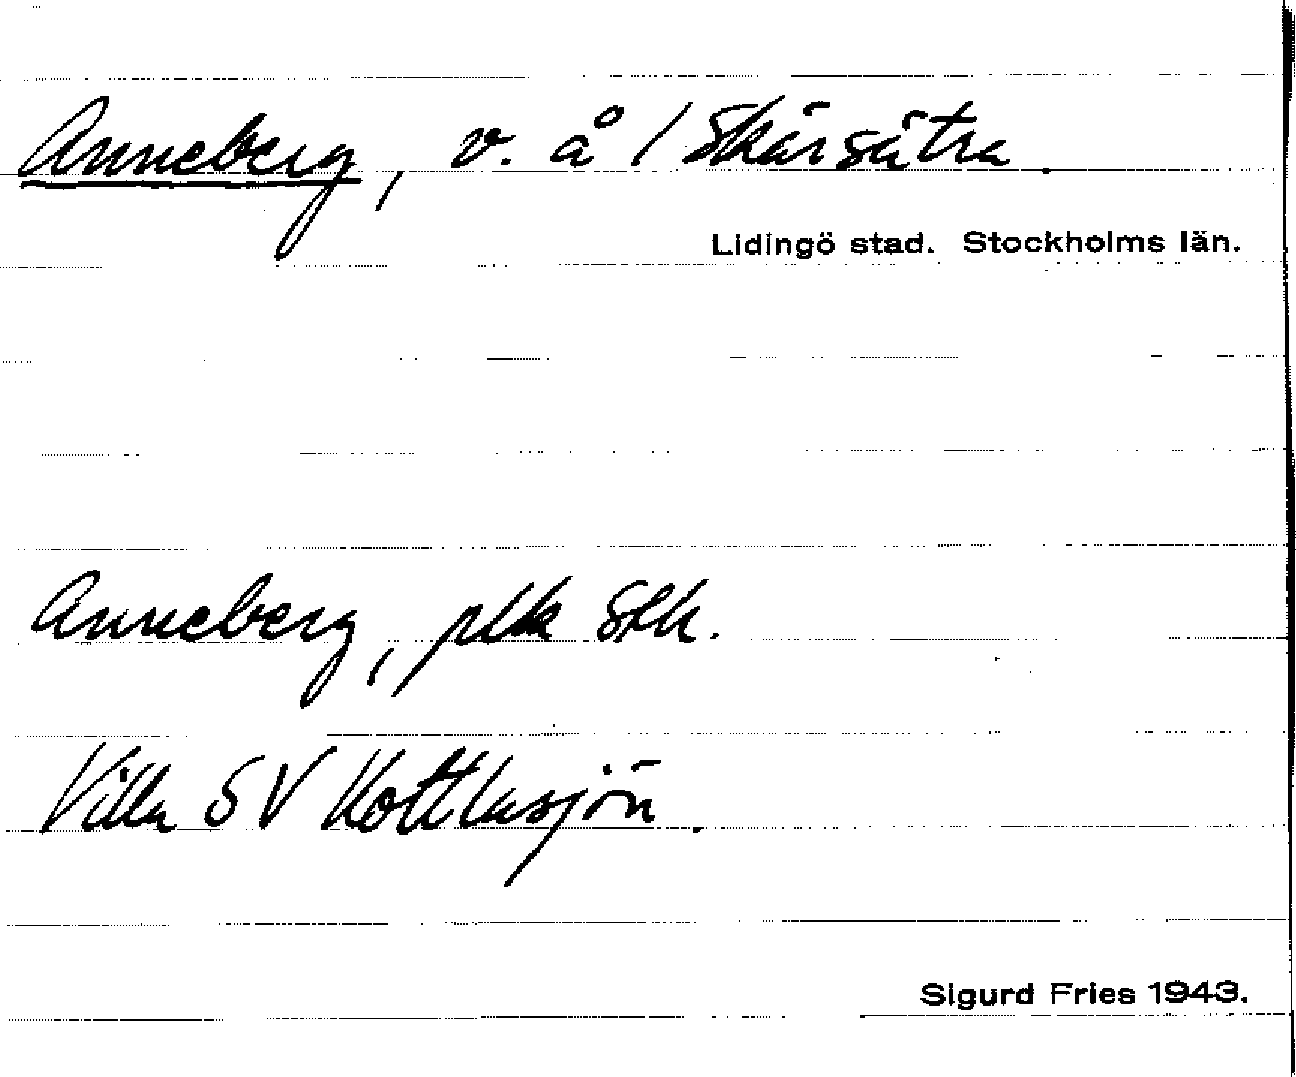 Anneberg, v. å / Skärsätra
Lidingö stad. Stockholms län.
Anneberg, plk Sthlm.
Villa SV Kottlasjön.
Sigurd Fries 1943.